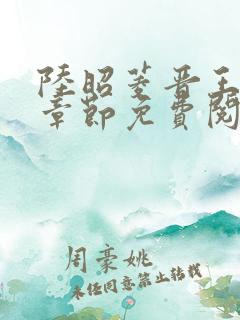 陸昭菱晋王
章節免費閱
周豪姚
未经同意禁止转载